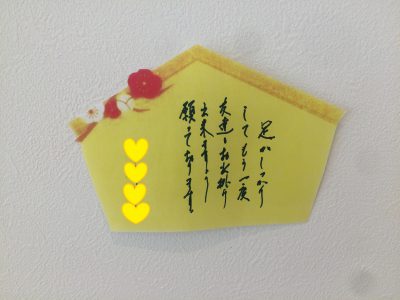 足がしっかり
してもう一度
友達とお出掛け
出来ますよう
願って居ります